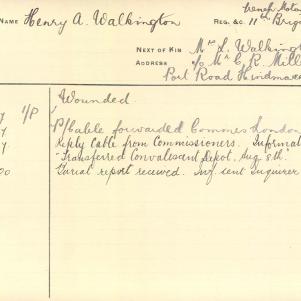 NAME Henry A. Walkington
Trench Mortar
REG. &c. 11th Brig
NEXT OF KIN Mrs L. Walkingt
ADDRESS c/o Mr C. R. Mill
Port Road Hindma
1/P Wounded.
P/Cable forwarded Commrs London
Reply Cable from Commissioners. Informat
"Transferred Convalescent Depot, Aug 8th."
report received. Inf. sent Inquirer